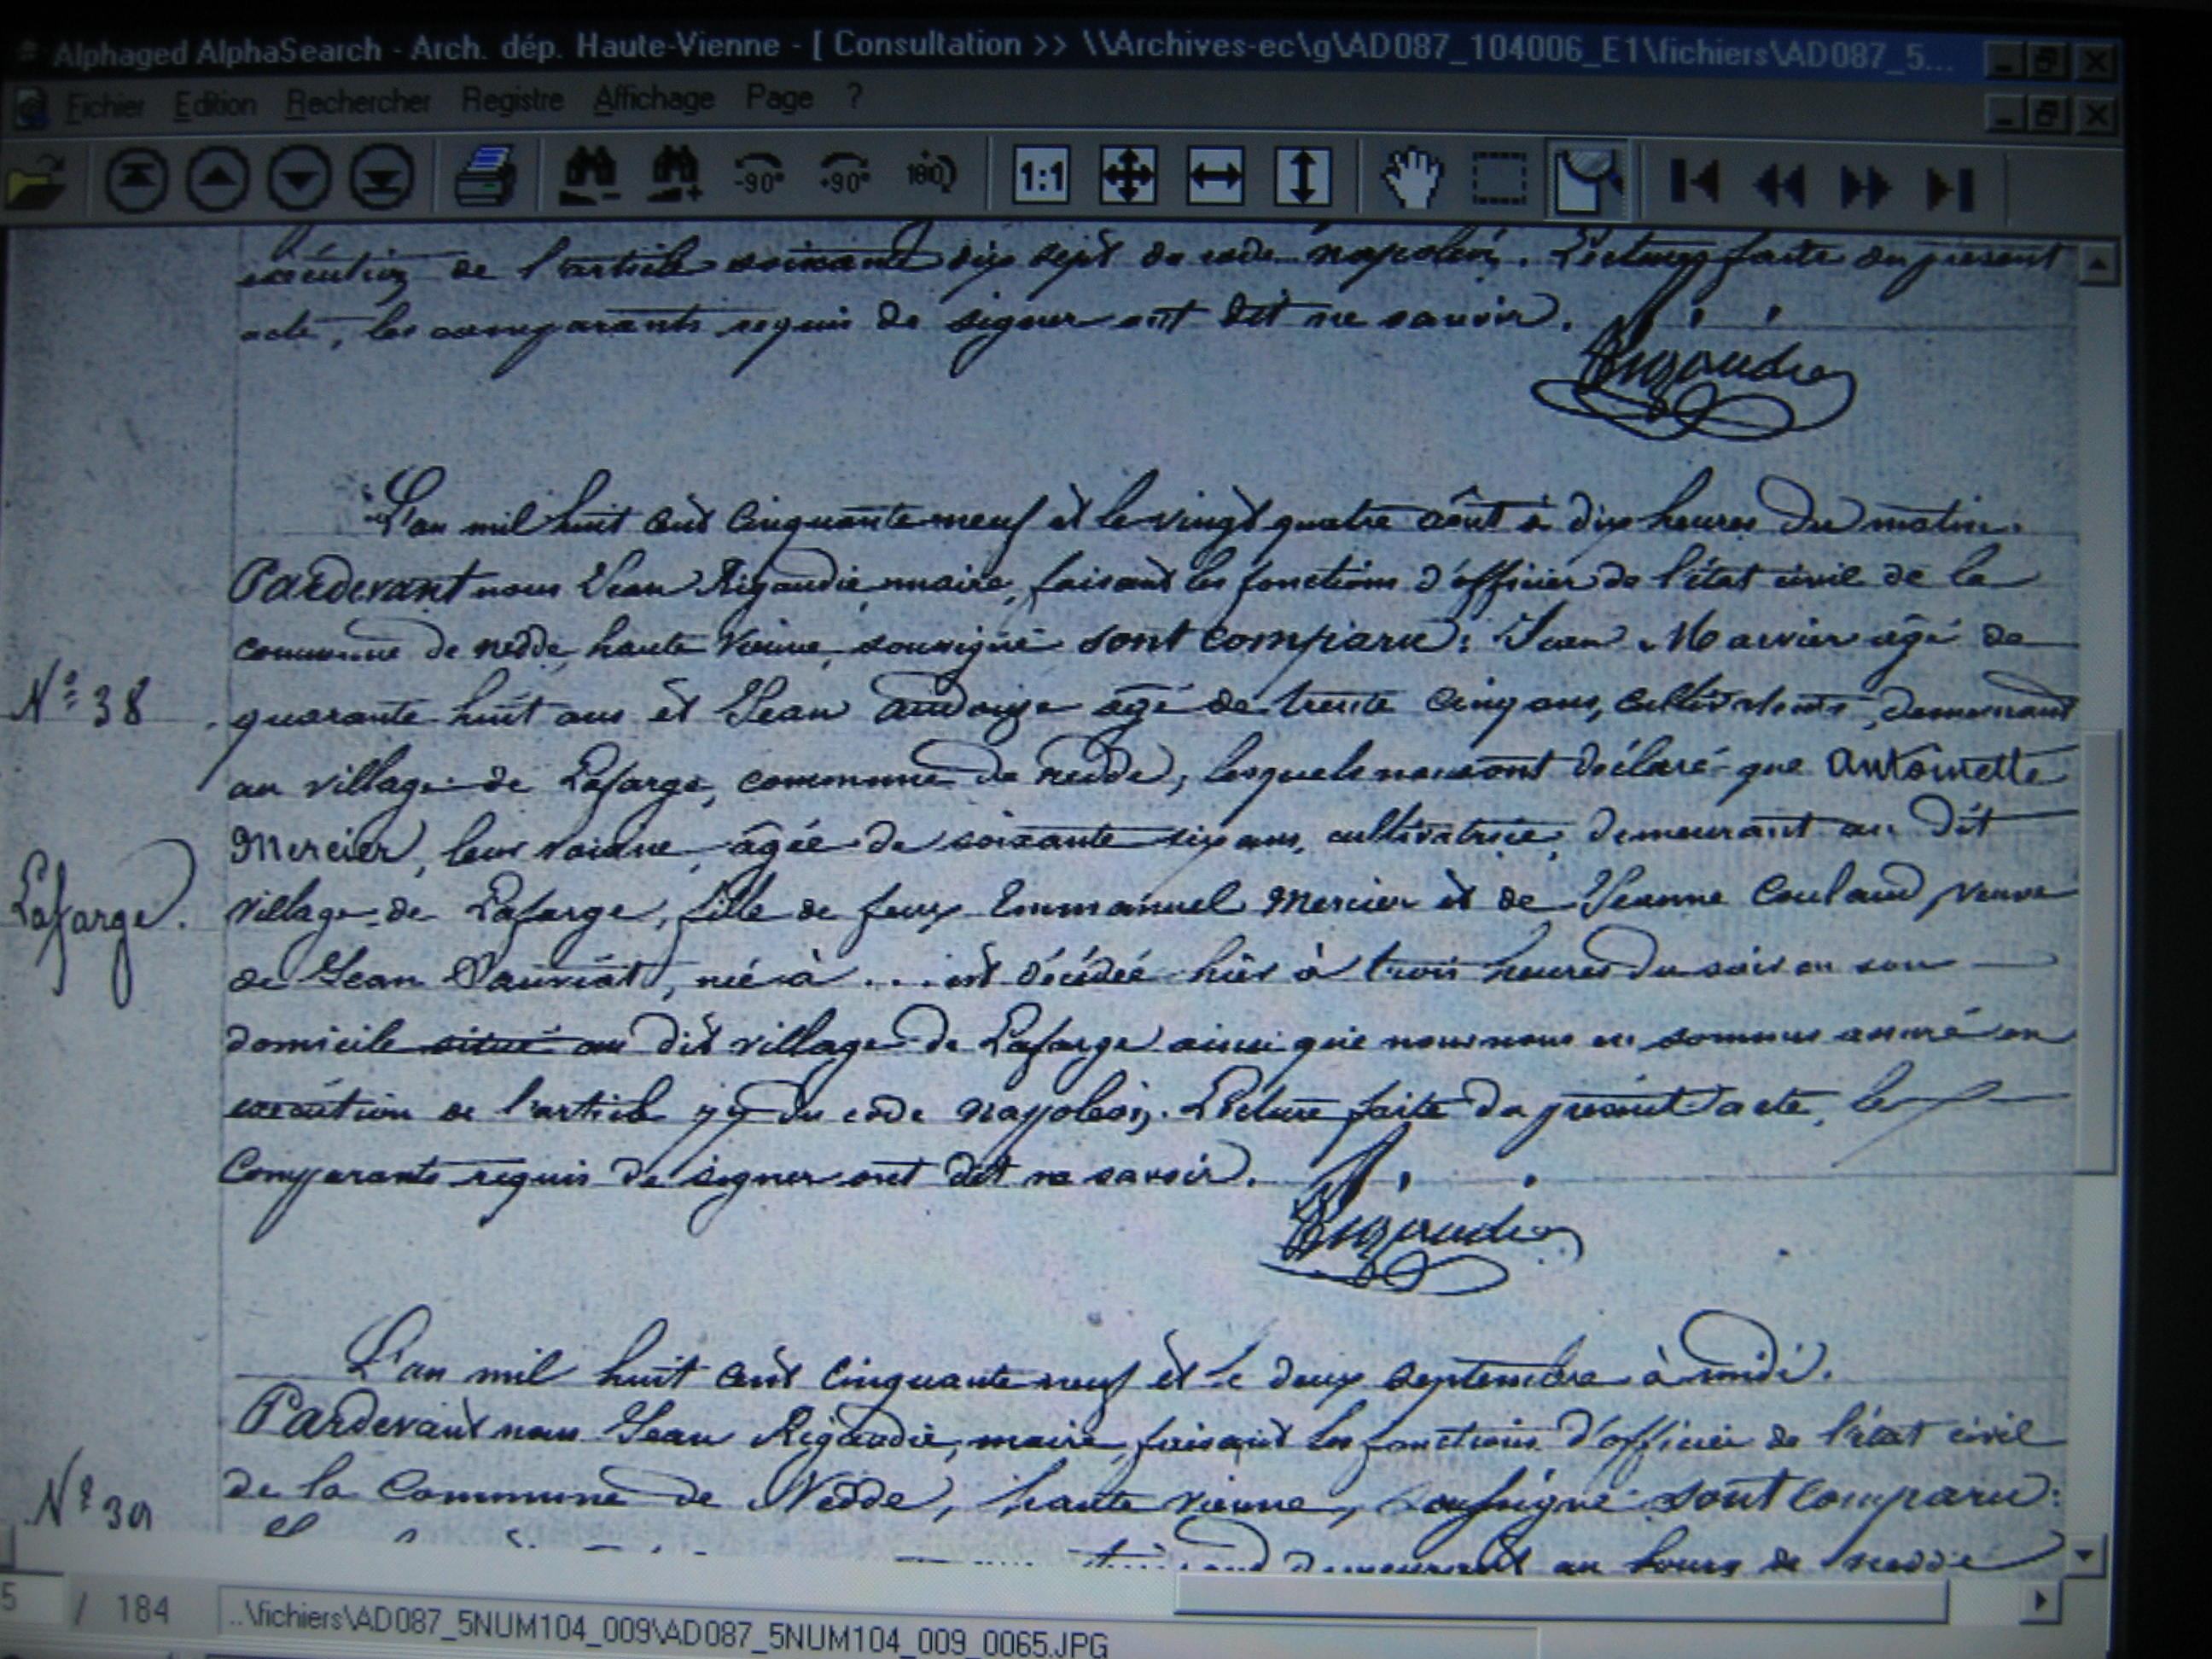 Alphaged AlphaSearch - Arch. dép. Haute-Vienne - [ Consultation >> \\Archives-ec\g\AD087_104006_E1\fichiers\AD087_5...
Fichier Edition Rechercher Registre Affichage Page ?
-90° +90° 180 1:1
exécution de l'article soixante dix sept du code napoléon. Lecture faite du présent
acte, les comparants requis de signer ont dit ne savoir.
Rigaudie
L'an mil huit cent cinquante neuf et le vingt quatre août à dix heures du matin.
Pardevant nous Jean Rigaudie maire, faisant les fonctions d'officier de l'état civil de la
commune de nedde, haute Vienne, soussigné sont comparu: Jean Marvier agé de
N° 38
quarante huit ans et Jean agé de trente cinq ans, cultivateurs, demeurant
au village de Lafarge, commune de nedde, lesquels nous ont déclaré que Antoinette
Mercier, leur voisine, agée de soixante six ans, cultivatrice, demeurant au dit
Lafarge.
village de Lafarge, fille de feux Emmanuel Mercier et de Jeanne Coulaud, veuve
de Jean Sauviat, née à ... est décédée hier à trois heures du soir en son
domicile situé au dit village de Lafarge ainsi que nous nous en sommes assuré en
exécution de l'article 77 du code napoléon. Lecture faite du présent acte, les
Comparants requis de signer ont dit ne savoir.
Rigaudie
L'an mil huit cent cinquante neuf et le deux septembre à midi.
Pardevant nous Jean Rigaudie, maire, faisant les fonctions d'officier de l'état civil
de la Commune de Nedde, haute vienne, soussigné sont comparu:
N° 39
demeurant au bourg de nedde
5 / 184
..\fichiers\AD087_5NUM104_009\AD087_5NUM104_009_0065.JPG